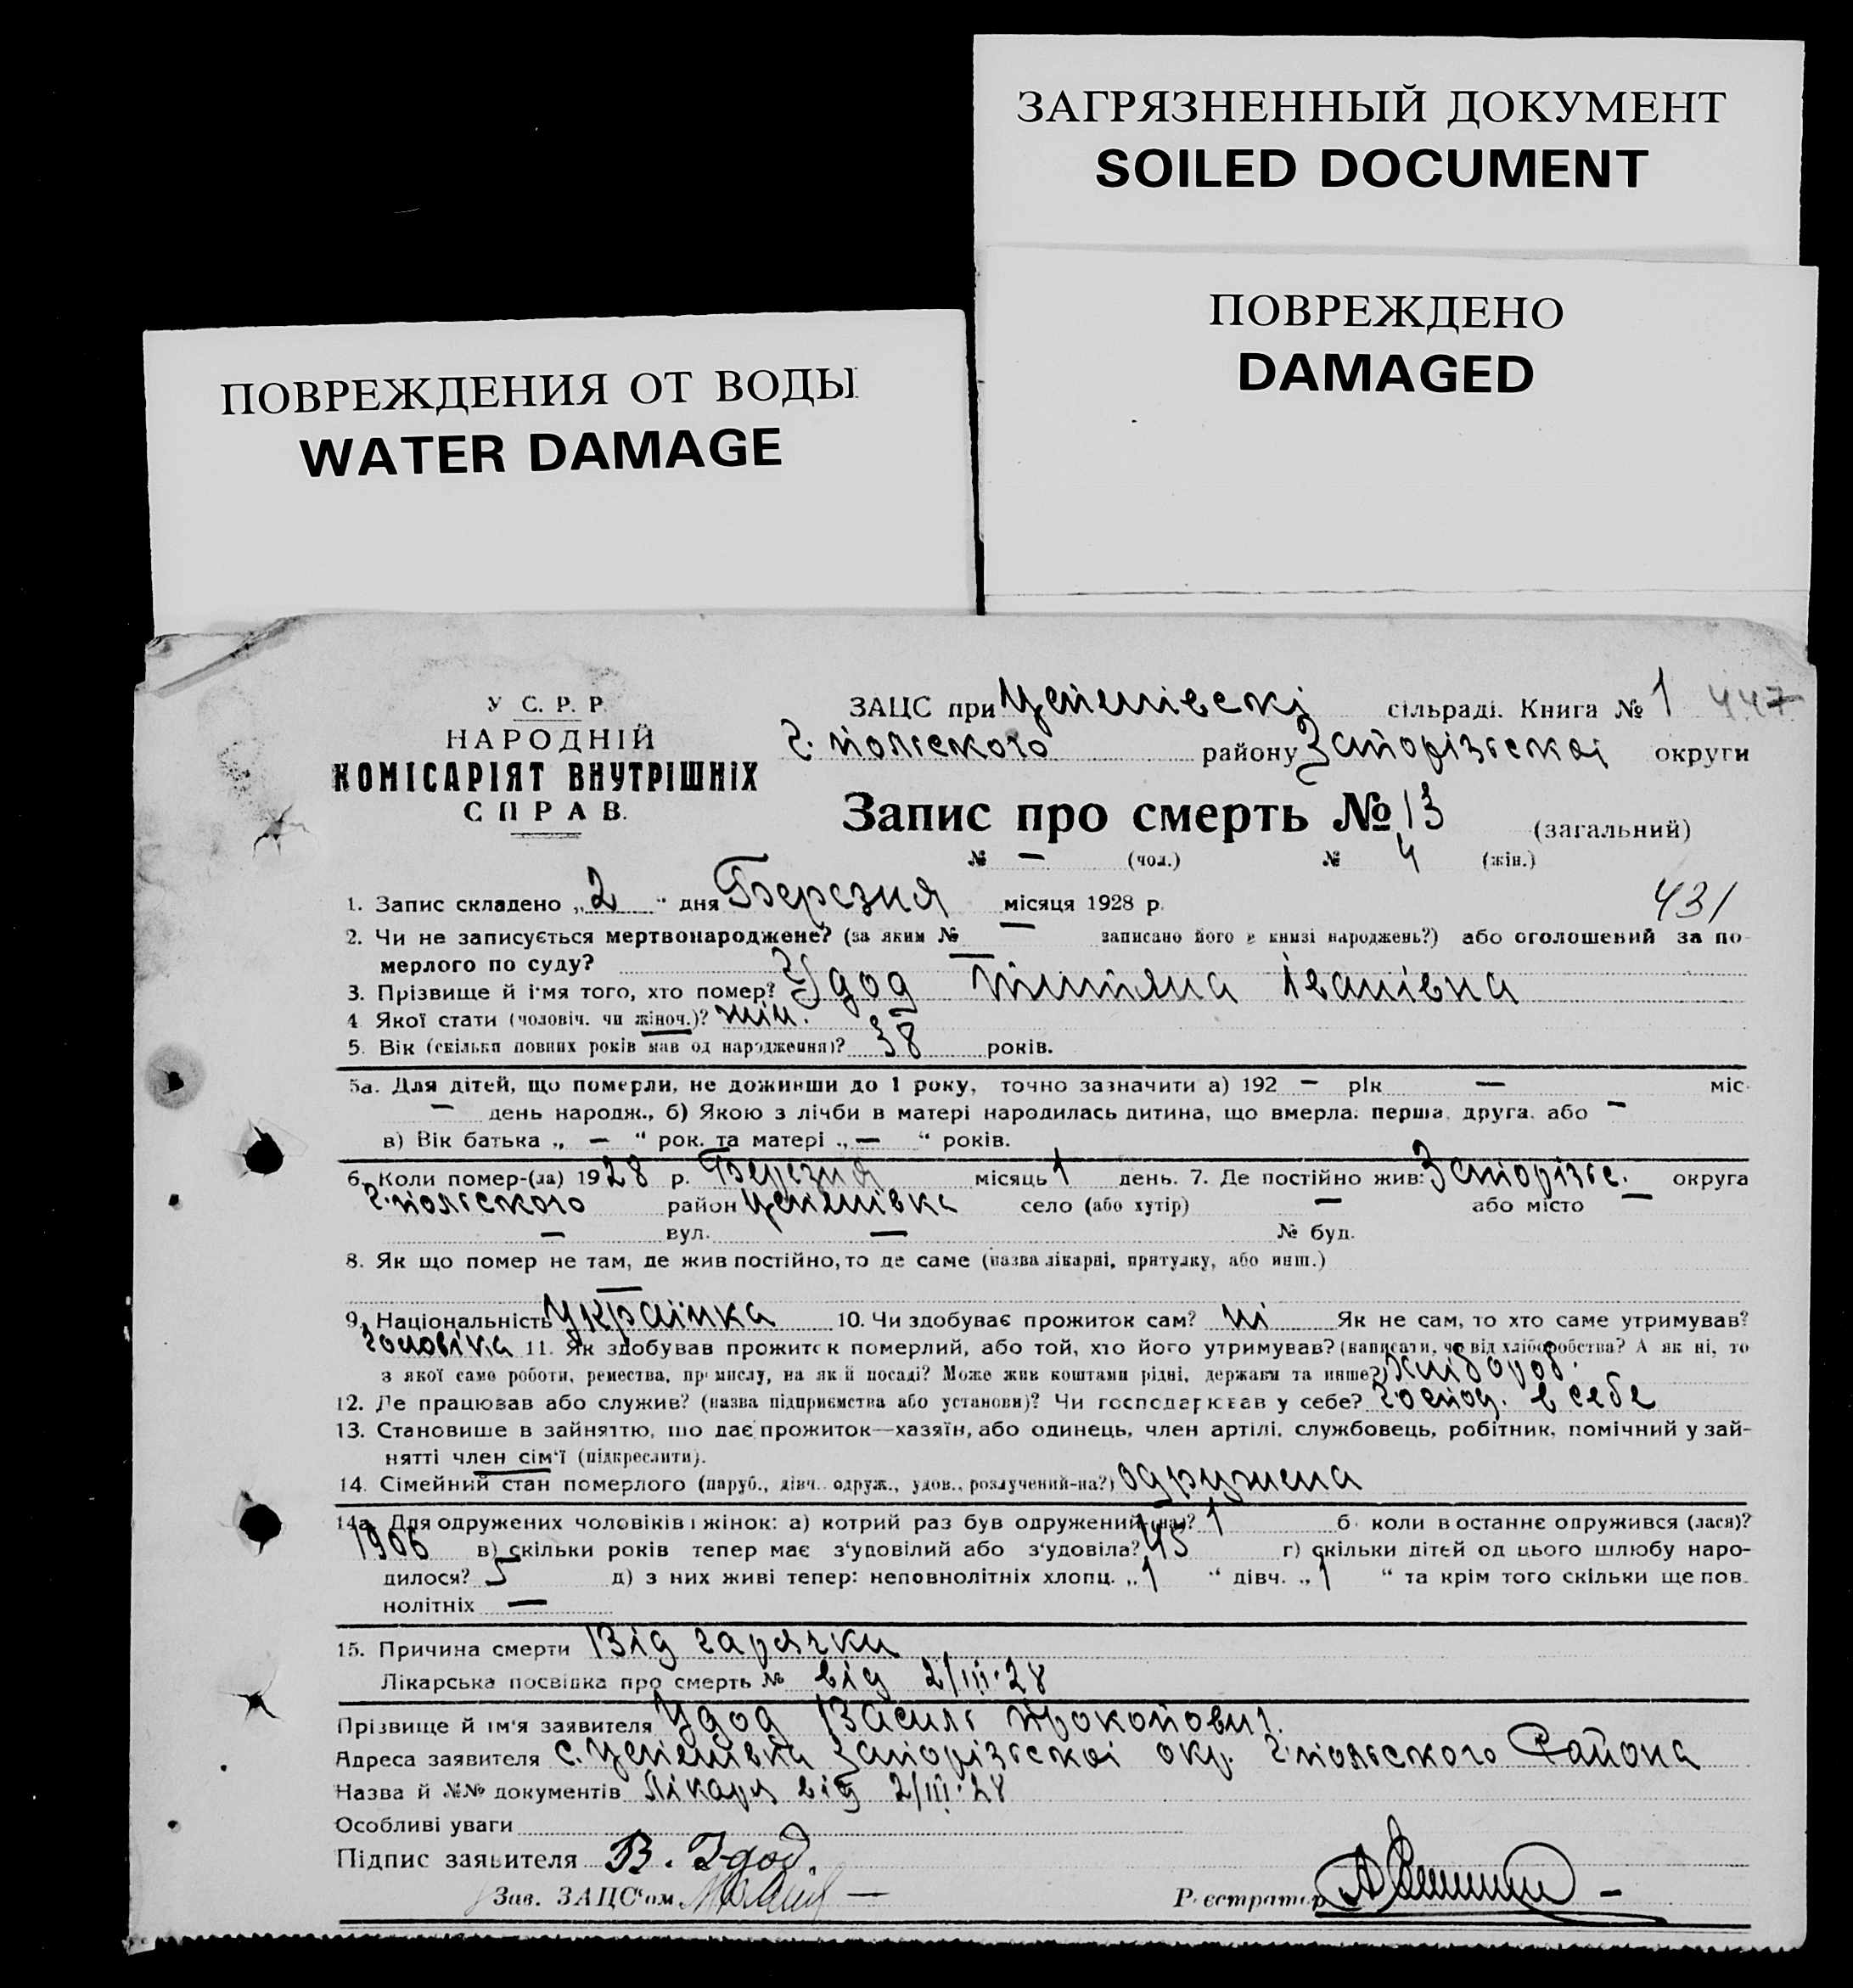 ЗАГРЯЗНЕННЫЙ ДОКУМЕНТ
SOILED DOCUMENT
ПОВРЕЖДЕНО
DAMAGED
ПОВРЕЖДЕНИЯ ОТ ВОДЫ
WATER DAMAGE
У С. Р. Р.
НАРОДНІЙ
КОМІСАРІЯТ ВНУТРІШНІХ
СПРАВ.
ЗАЦС при сільраді. Книга № 1 447
району Запорізської округи
Запис про смерть № 13 (загальний)
№ — (чол.) № 4 (жін.)
1. Запис складено „2“ дня Березня місяця 1928 р.
431
2. Чи не записується мертвонароджене? (за яким № — записано його в книзі народжень?) або оголошений за по-
мерлого по суду? —
3. Прізвище й ім'я того, хто помер? Удод Тітіяна Іванівна
4 Якої стати (чоловіч. чи жіноч.)? жін.
5. Вік (скільки повних років мав од народження)? 38 років.
5а. Для дітей, що померли, не доживши до 1 року, точно зазначити а) 192 — рік — міс.
— день народж., б) Якою з лічби в матері народилась дитина, що вмерла: перша, друга, або —
в) Вік батька „ — “ рок. та матері „ — “ років.
6. Коли помер-(ла) 1928 р. Березня місяць 1 день. 7. Де постійно жив: Запорізьс. округа
район село (або хутір) — або місто —
— вул. — № буд.
8. Як що помер не там, де жив постійно, то де саме (назва лікарні, притулку, або инш.)
—
9. Національність Українка 10. Чи здобуває прожиток сам? ні Як не сам, то хто саме утримував?
чоловіка 11. Як здобував прожиток померлий, або той, хто його утримував? (написати, чи від хліборобства? А як ні, то
з якої саме роботи, ремества, промислу, на якій посаді? Може жив коштами рідні, держави та инше?) хлібороб.
12. Де працював або служив? (назва підприємства або установи)? Чи господарював у себе? господ. в себе
13. Становище в зайняттю, що дає прожиток—хазяїн, або одинець, член артілі, службовець, робітник, помічний у зай-
нятті член сім'ї (підкреслити).
14. Сімейний стан померлого (паруб., дівч. одруж., удов., розлучений-на?) одружена
14а. Для одружених чоловіків і жінок: а) котрий раз був одружений-(на)? 1 б коли востаннє одружився (лася)?
1906 в) скільки років тепер має з'удовілий або з'удовіла? 45 г) скільки дітей од цього шлюбу наро-
дилося? 5 д) з них живі тепер: неповнолітніх хлопц. „1“ дівч. „1“ та крім того скільки ще пов-
нолітніх —
15. Причина смерти Від гарячки
Лікарська посвідка про смерть № від 2/III-28
Прізвище й ім'я заявителя Удод Василь Прокопович.
Адреса заявителя с. Запорізської окр. Района
Назва й №№ документів Лікаря від 2/III-28
Особливі уваги
Підпис заявителя В. Удод.
Зав. ЗАЦС'ом
Реєстратор